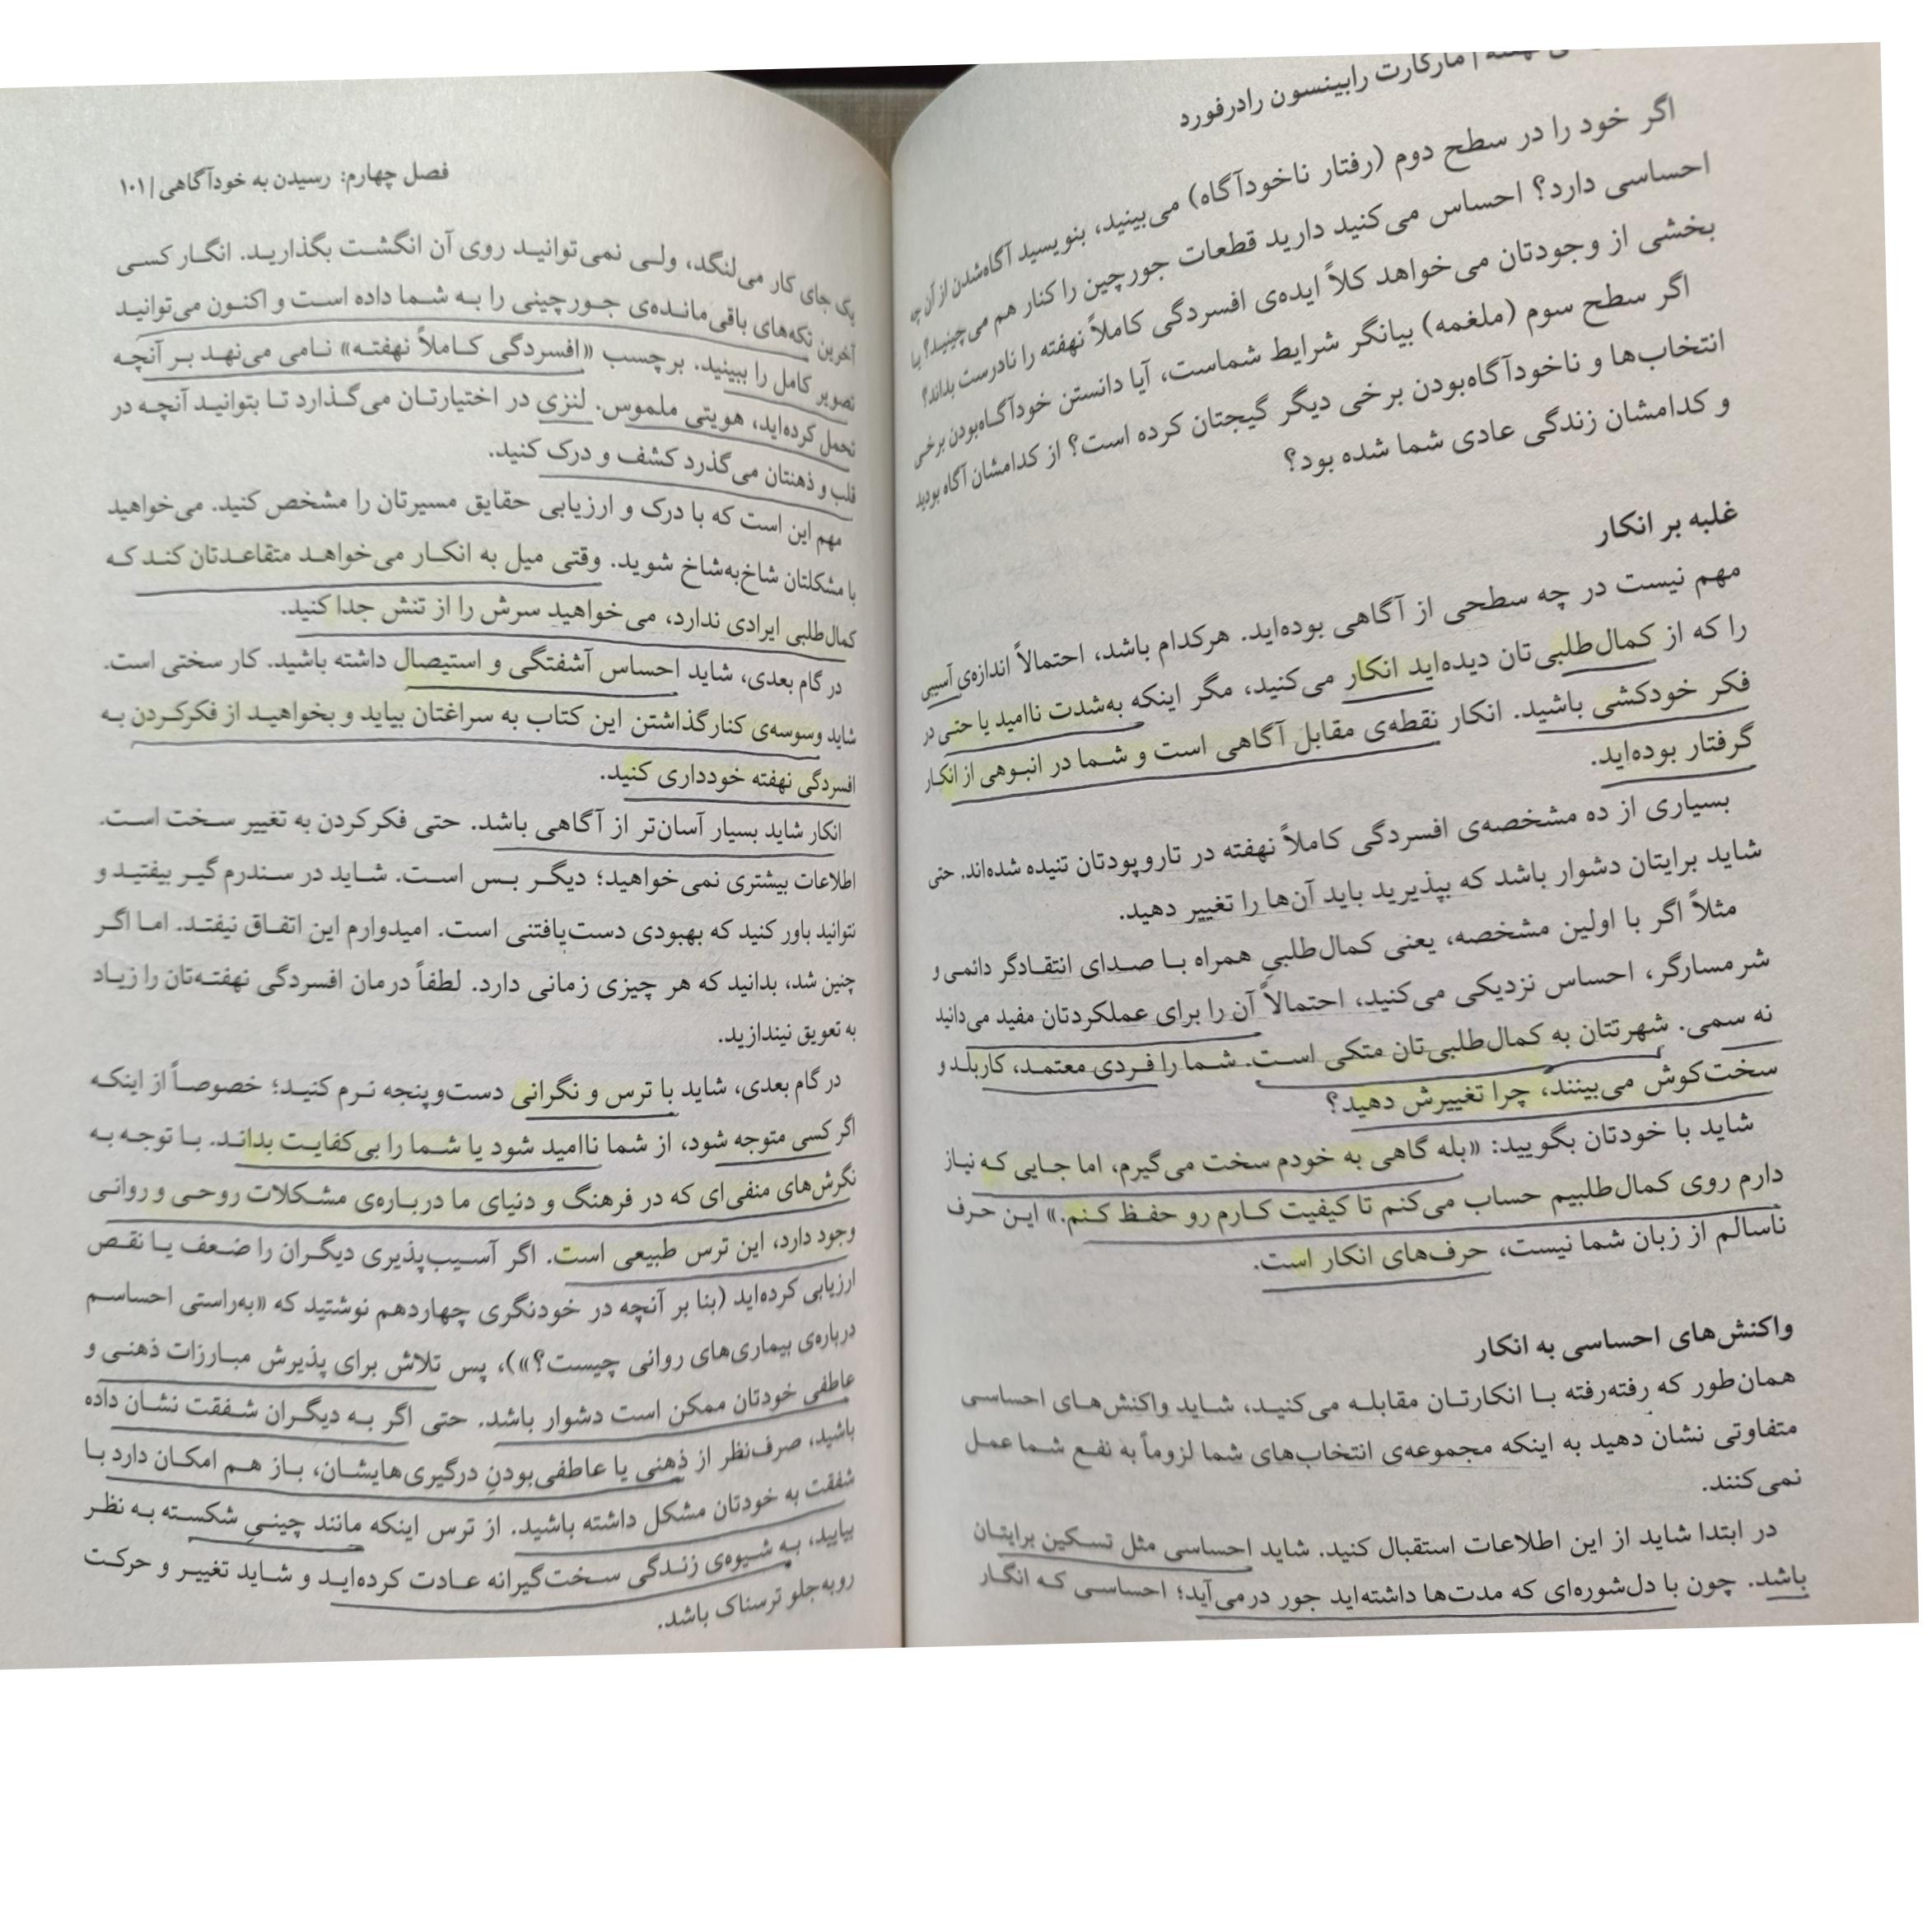 مارگارت رابینسون رادرفورد
اگر خود را در سطح دوم (رفتار ناخودآگاه) می‌بینید، بنویسید آگاه‌شدن از آن چه
احساسی دارد؟ احساس می‌کنید دارید قطعات جورچین را کنار هم می‌چینید؟ یا
بخشی از وجودتان می‌خواهد کلاً ایده‌ی افسردگی کاملاً نهفته را نادرست بداند؟
اگر سطح سوم (ملغمه) بیانگر شرایط شماست، آیا دانستن خودآگاه‌بودن برخی
انتخاب‌ها و ناخودآگاه‌بودن برخی دیگر گیجتان کرده است؟ از کدامشان آگاه بودید
و کدامشان زندگی عادی شما شده بود؟
غلبه بر انکار
مهم نیست در چه سطحی از آگاهی بوده‌اید. هرکدام باشد، احتمالاً اندازه‌ی آسیبی
را که از کمال‌طلبی‌تان دیده‌اید انکار می‌کنید، مگر اینکه به‌شدت ناامید یا حتی در
فکر خودکشی باشید. انکار نقطه‌ی مقابل آگاهی است و شما در انبوهی از انکار
گرفتار بوده‌اید.
بسیاری از ده مشخصه‌ی افسردگی کاملاً نهفته در تاروپودتان تنیده شده‌اند. حتی
شاید برایتان دشوار باشد که بپذیرید باید آن‌ها را تغییر دهید.
مثلاً اگر با اولین مشخصه، یعنی کمال‌طلبیِ همراه با صدای انتقادگر دائمی و
شرمسارگر، احساس نزدیکی می‌کنید، احتمالاً آن را برای عملکردتان مفید می‌دانید
نه سمی. شهرتتان به کمال‌طلبی‌تان متکی است. شما را فردی معتمد، کاربلد و
سخت‌کوش می‌بینند، چرا تغییرش دهید؟
شاید با خودتان بگویید: «بله گاهی به خودم سخت می‌گیرم، اما جایی که نیاز
دارم روی کمال‌طلبیم حساب می‌کنم تا کیفیت کارم رو حفظ کنم.» این حرف
ناسالم از زبان شما نیست، حرف‌های انکار است.
واکنش‌های احساسی به انکار
همان‌طور که رفته‌رفته با انکارتان مقابله می‌کنید، شاید واکنش‌های احساسی
متفاوتی نشان دهید به اینکه مجموعه‌ی انتخاب‌های شما لزوماً به نفع شما عمل
نمی‌کنند.
در ابتدا شاید از این اطلاعات استقبال کنید. شاید احساسی مثل تسکین برایتان
باشد. چون با دل‌شوره‌ای که مدت‌ها داشته‌اید جور درمی‌آید؛ احساسی که انگار
فصل چهارم: رسیدن به خودآگاهی | ۱۰۱
یک جای کار می‌لنگد، ولی نمی‌توانید روی آن انگشت بگذارید. انگار کسی
آخرین تکه‌های باقی‌مانده‌ی جورچینی را به شما داده است و اکنون می‌توانید
تصویر کامل را ببینید. برچسب «افسردگی کاملاً نهفته» نامی می‌نهد بر آنچه
تحمل کرده‌اید، هویتی ملموس. لنزی در اختیارتان می‌گذارد تا بتوانید آنچه در
قلب و ذهنتان می‌گذرد کشف و درک کنید.
مهم این است که با درک و ارزیابی حقایق مسیرتان را مشخص کنید. می‌خواهید
با مشکلتان شاخ‌به‌شاخ شوید. وقتی میل به انکار می‌خواهد متقاعدتان کند که
کمال‌طلبی ایرادی ندارد، می‌خواهید سرش را از تنش جدا کنید.
در گام بعدی، شاید احساس آشفتگی و استیصال داشته باشید. کار سختی است.
شاید وسوسه‌ی کنارگذاشتن این کتاب به سراغتان بیاید و بخواهید از فکرکردن به
افسردگی نهفته خودداری کنید.
انکار شاید بسیار آسان‌تر از آگاهی باشد. حتی فکرکردن به تغییر سخت است.
اطلاعات بیشتری نمی‌خواهید؛ دیگر بس است. شاید در سندرم گیر بیفتید و
نتوانید باور کنید که بهبودی دست‌یافتنی است. امیدوارم این اتفاق نیفتد. اما اگر
چنین شد، بدانید که هر چیزی زمانی دارد. لطفاً درمان افسردگی نهفته‌تان را زیاد
به تعویق نیندازید.
در گام بعدی، شاید با ترس و نگرانی دست‌وپنجه نرم کنید؛ خصوصاً از اینکه
اگر کسی متوجه شود، از شما ناامید شود یا شما را بی‌کفایت بداند. با توجه به
نگرش‌های منفی‌ای که در فرهنگ و دنیای ما درباره‌ی مشکلات روحی و روانی
وجود دارد، این ترس طبیعی است. اگر آسیب‌پذیری دیگران را ضعف یا نقص
ارزیابی کرده‌اید (بنا بر آنچه در خودنگری چهاردهم نوشتید که «به‌راستی احساسم
درباره‌ی بیماری‌های روانی چیست؟»)، پس تلاش برای پذیرش مبارزات ذهنی و
عاطفی خودتان ممکن است دشوار باشد. حتی اگر به دیگران شفقت نشان داده
باشید، صرف‌نظر از ذهنی یا عاطفی‌بودنِ درگیری‌هایشان، باز هم امکان دارد با
شفقت به خودتان مشکل داشته باشید. از ترس اینکه مانند چینیِ شکسته به نظر
بیایید، به شیوه‌ی زندگی سخت‌گیرانه عادت کرده‌اید و شاید تغییر و حرکت
روبه‌جلو ترسناک باشد.